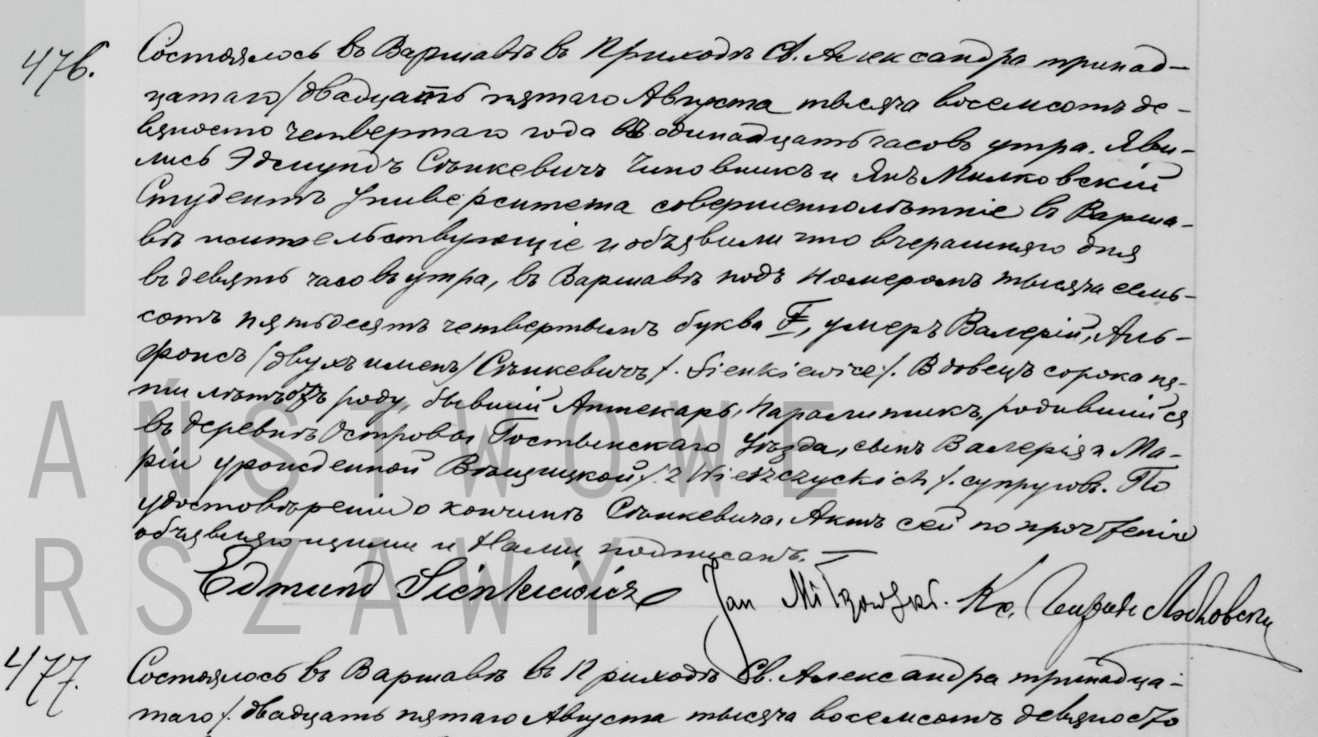 476.
Состоялось въ Варшавѣ въ Приходѣ Св. Александра тринад-
цатаго/двадцать пятаго Августа тысяча восемсотъ де-
вяносто четвертаго года въ одинадцать часовъ утра. Яви-
лись Эдмундъ Сѣнкевичъ Чиновникъ и Янъ Милковскій
Студентъ Университета совершеннолѣтніе въ Варша-
вѣ жительствующіе и объявили что вчерашняго дня
въ девять часовъ утра, въ Варшавѣ подъ номеромъ тысяча семь-
сотъ пятьдесятъ четвертымъ буква F, умеръ Валерій, Аль-
фонсъ /двухъ именъ/ Сѣнкевичъ /. Sienkiewicz /. Вдовецъ сорока пя-
ти лѣтъ отъ роду, бывшій Аптекарь, Паралитикъ, родившійся
въ деревнѣ Островы Гостынскаго Уѣзда, сынъ Валерія и Ма-
ріи урожденной Вѣщицкой /. z Wieszczyckich /. супруговъ. По
удостовѣреніи о кончинѣ Сѣнкевича, Актъ сей по прочтеніи
объявляющими и Нами подписанъ. —
Edmund Sienkiewicz Jan Miłkowski. Кс.
477.
Состоялось въ Варшавѣ въ Приходѣ Св. Александра тринадца-
таго /. двадцать пятаго Августа тысяча восемсотъ девяносто
AŃSTWOWE
RSZAWY